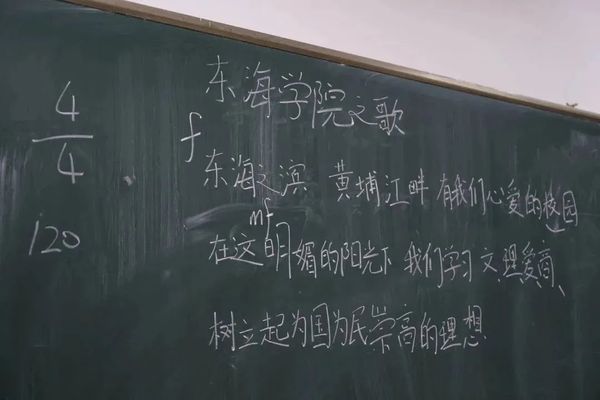 4
4
120
东海学院之歌
f
东海之滨 黄埔江畔 有我们心爱的校园
mf
在这明媚的阳光下 我们学习文理爱商、
树立起为国为民崇高的理想